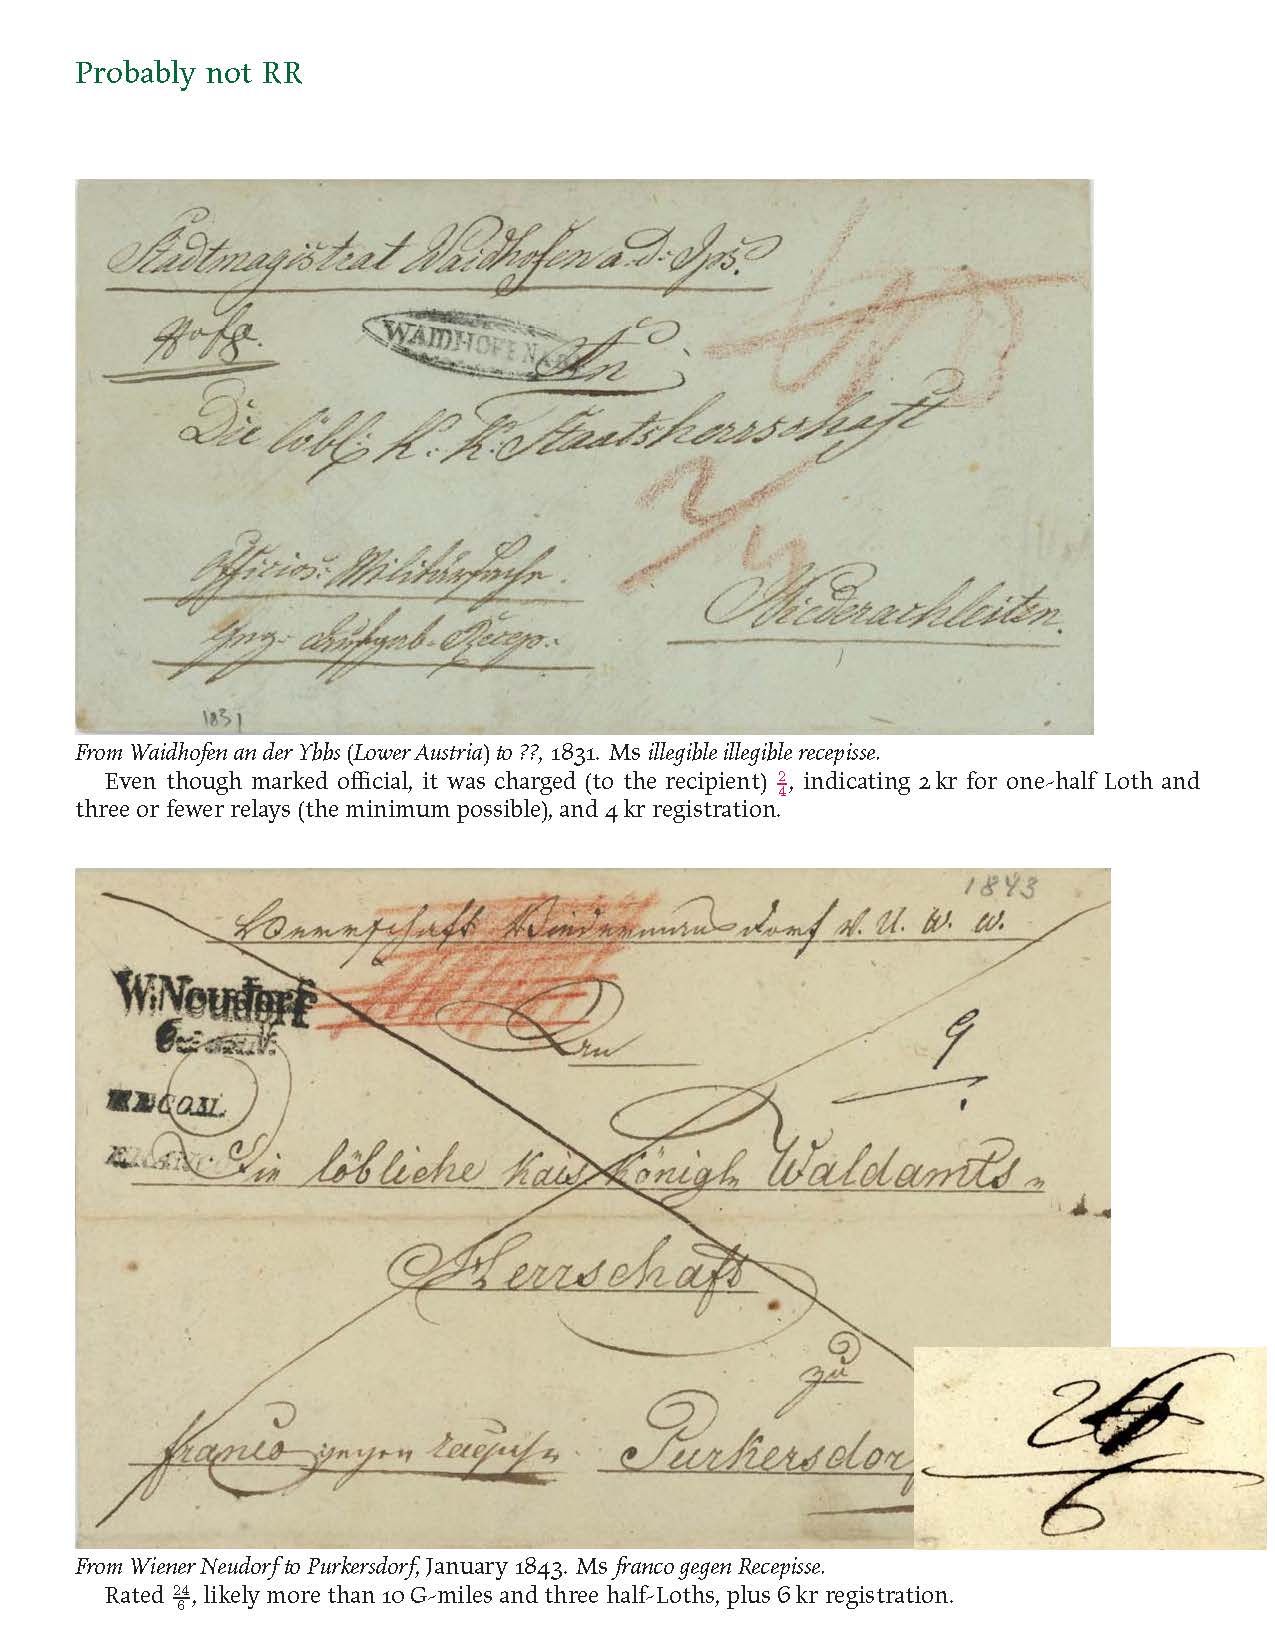 Probably not RR
Stadtmagistrat Waidhofen a. D: Ips.
WAIDHOFEN
An
Die löbl: K: K: Staatsherrschaft
2/4
Officios: Militärsache.
Niederachleiten.
1831
From Waidhofen an der Ybbs (Lower Austria) to ??, 1831. Ms illegible illegible recepisse.
Even though marked official, it was charged (to the recipient) 2/4, indicating 2 kr for one-half Loth and
three or fewer relays (the minimum possible), and 4 kr registration.
1843
Herrschaft Biedermannsdorf V. U. W. W.
W:Neudorf
An
9
RECOM.
FRANCO
Die löbliche Kais. Königl. Waldamts-
Herrschaft
zu
franco gegen Recepisse Purkersdorf
24
6
From Wiener Neudorf to Purkersdorf, January 1843. Ms franco gegen Recepisse.
Rated 24/6, likely more than 10 G-miles and three half-Loths, plus 6 kr registration.